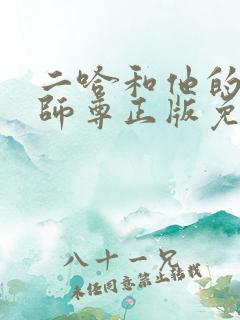 二哈和他的
師尊正版免
八十一兄
未经同意禁止转载